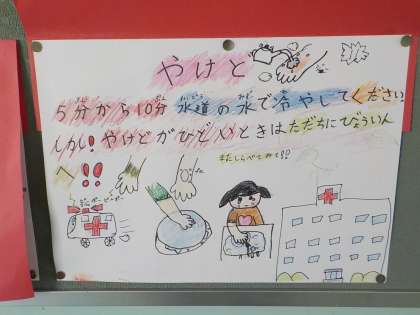 やけど
5分から10分 水道の水で冷やしてください
しかし! やけどがひどいときはただちにびょういん
へ!!
またしらべてみて!?